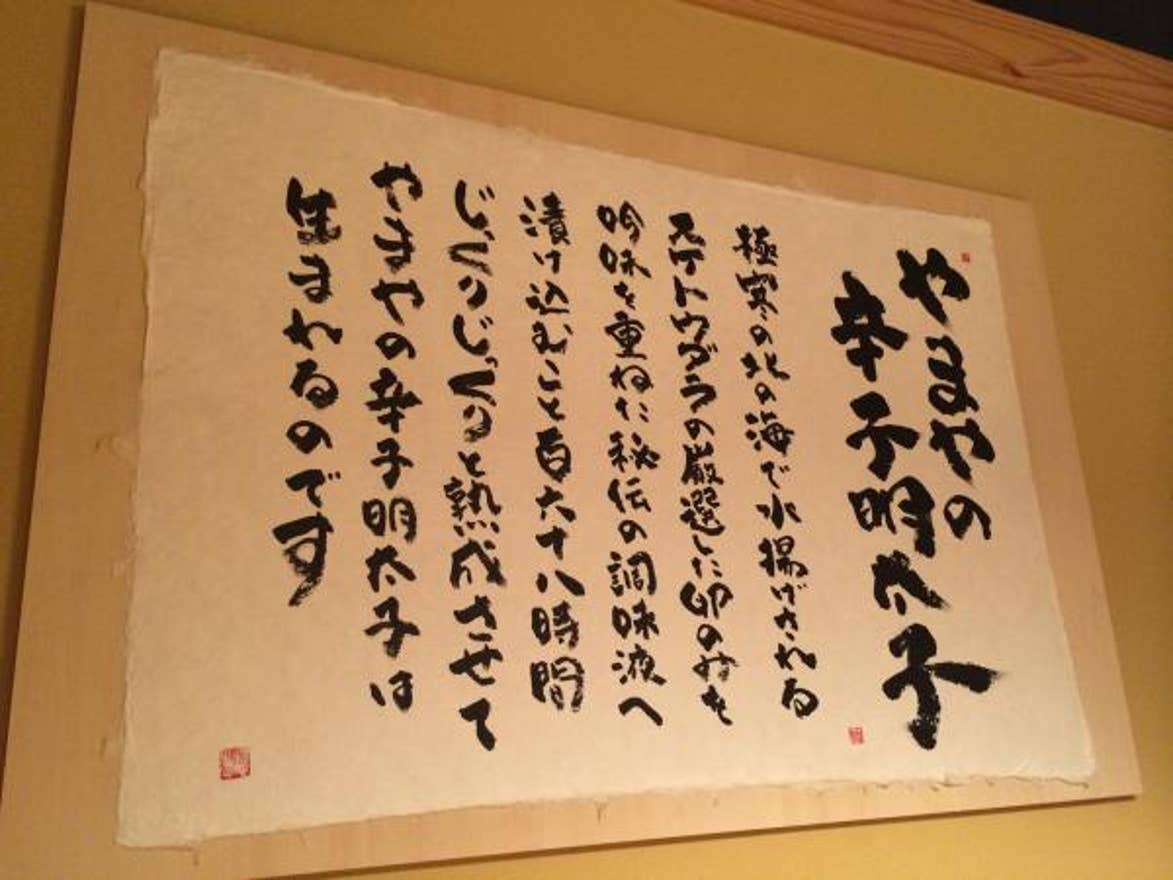 やまやの
辛子明太子
極寒の北の海で水揚げされる
スケトウダラの厳選した卵のみを
吟味を重ねた秘伝の調味液へ
漬け込むこと百六十八時間
じっくりじっくりと熟成させて
やまやの辛子明太子は
生まれるのです